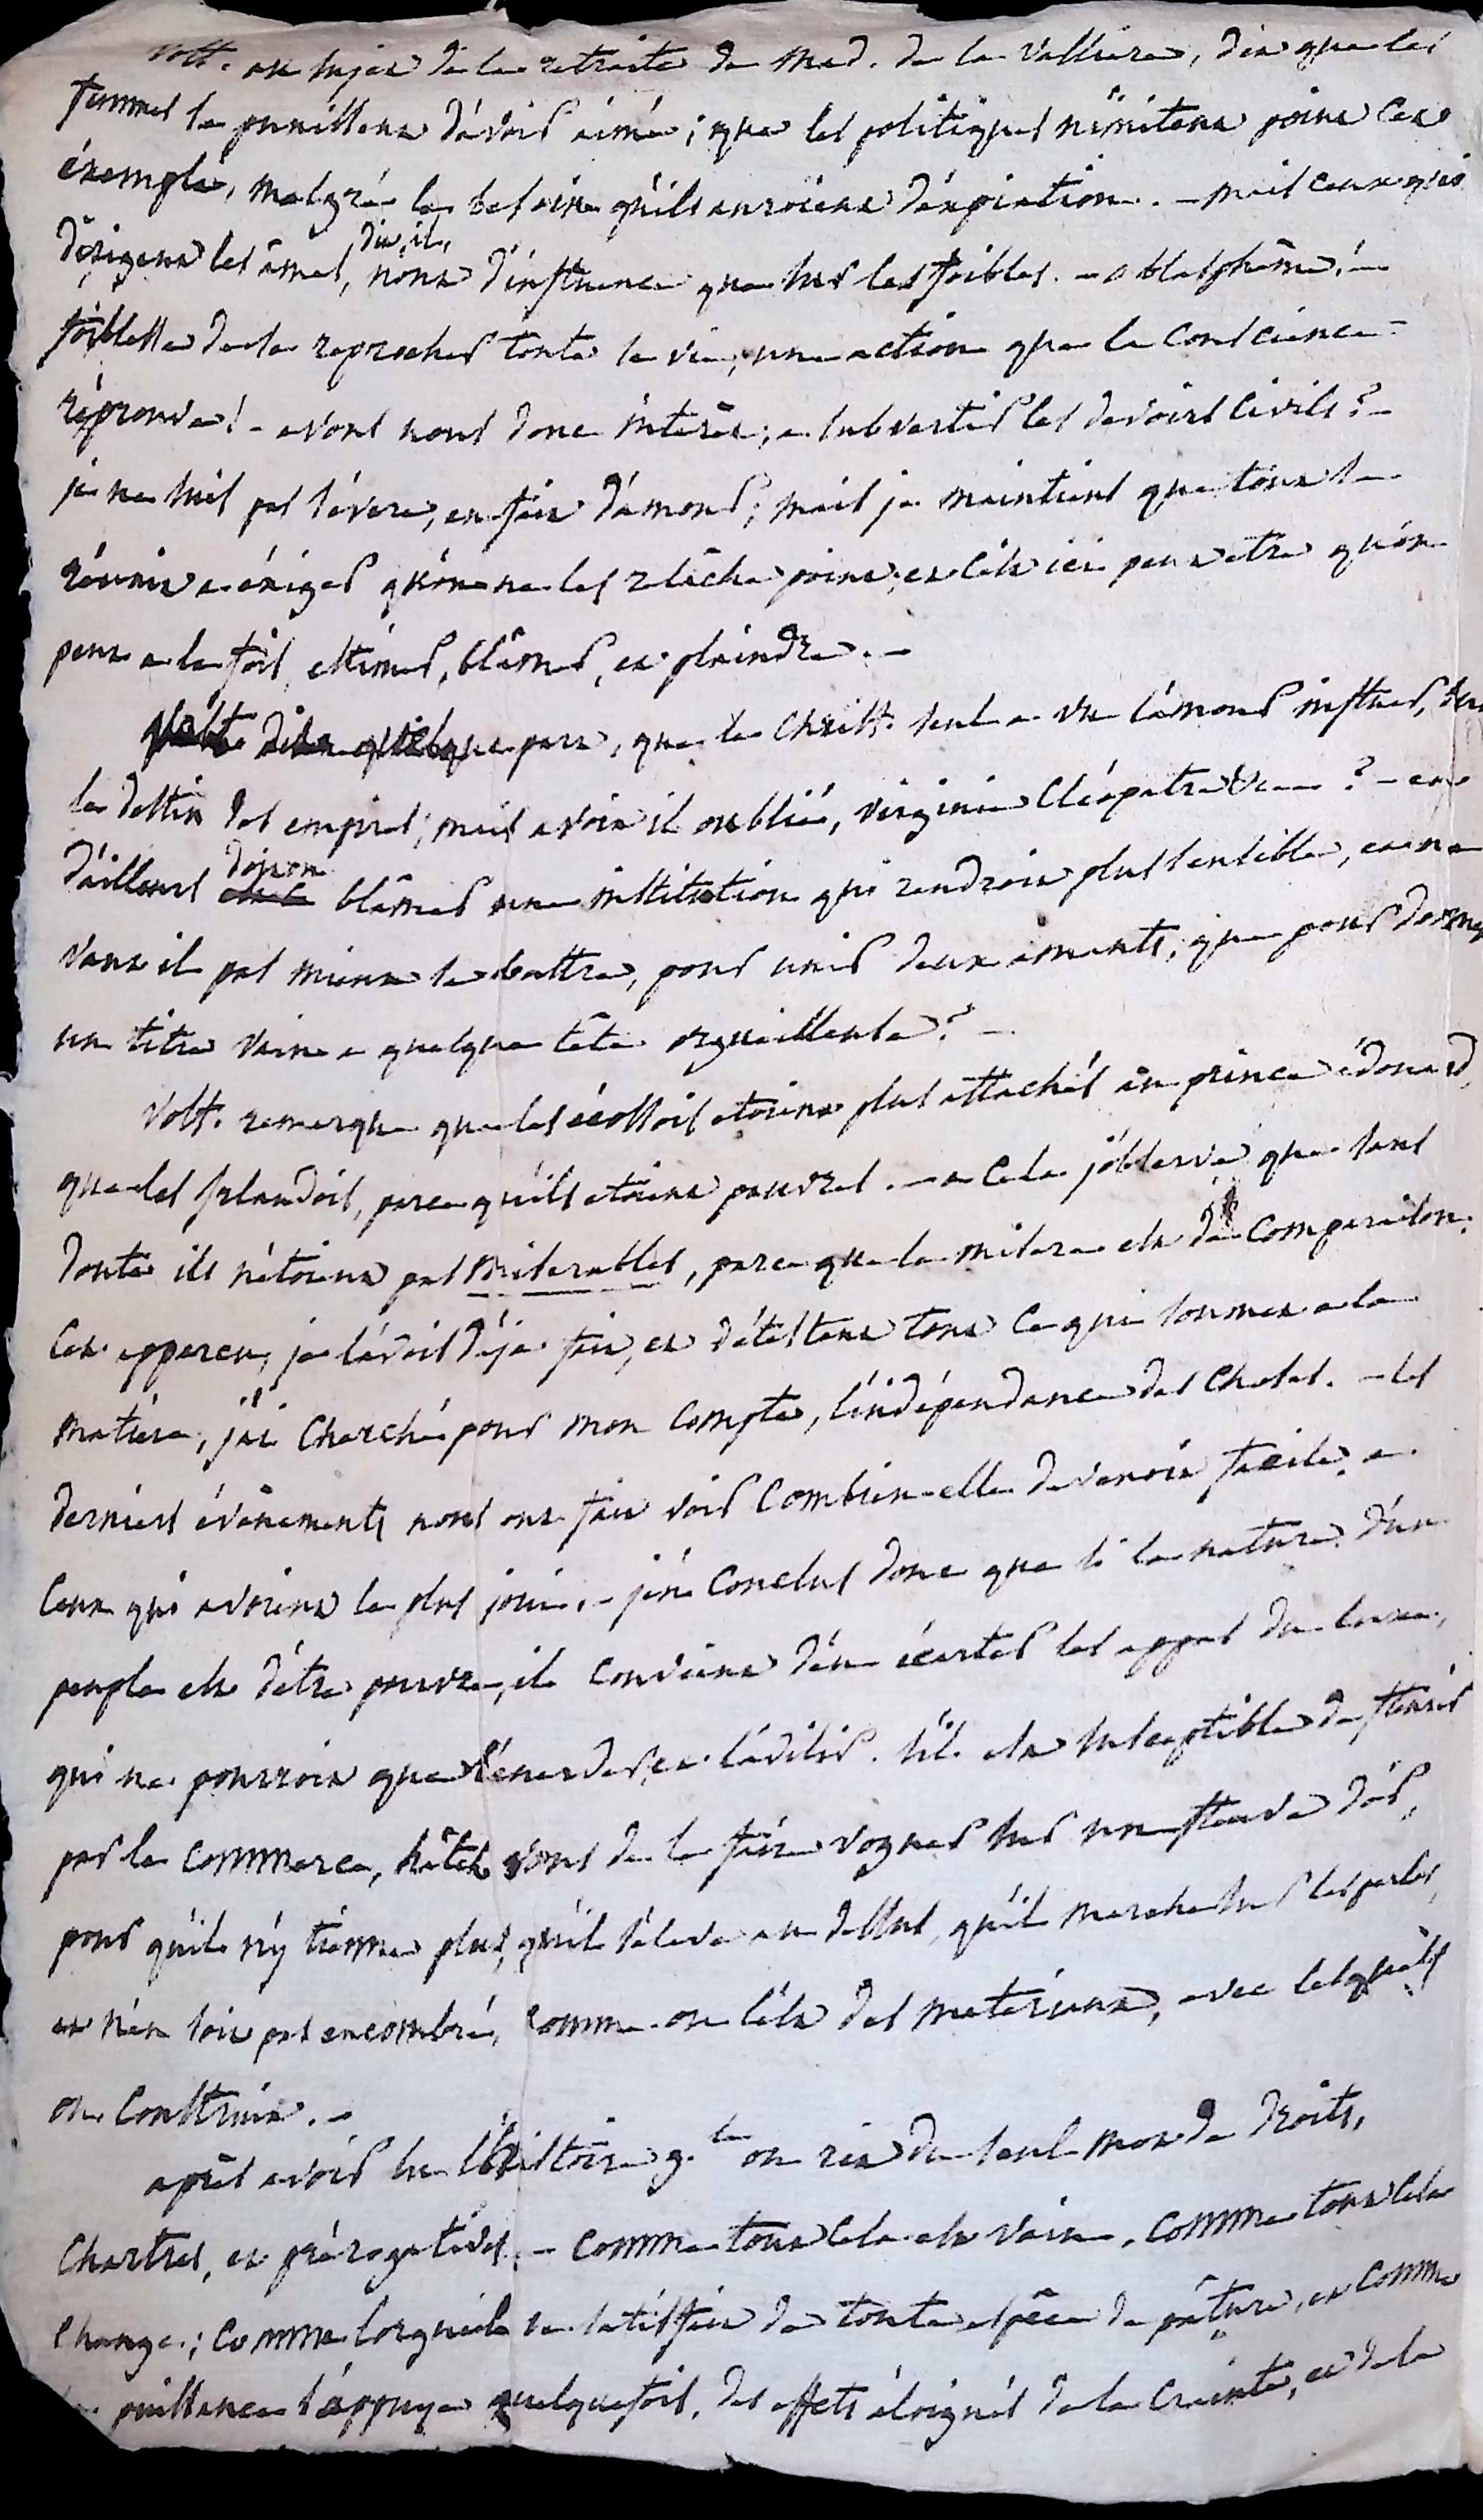 Volt. au sujet de la retraite de Mad. de la Valliere, dit que les
femmes se punissent d'avoir aimé; que les politiques n'imitent point cet
éxemple, malgré le besoin qu'ils auroient d'éxpiation. - mais ceux qui
dirigent les âmes, dit, il, n'ont d'influence que sur les foibles. - o blasphême! -
foiblesse de se reprocher toute sa vie, une action que la conscience
réprouve! - avons nous donc intérêt, a subvertir les devoirs civils? -
je ne suis pas sévere, en fait d'amour; mais je maintiens que tout se
réunit a éxiger qu'on ne les relâche point, et c'est ici peut etre qu'on
peut a la fois, estimer, blâmer, et plaindre. -
Volt. dit quelque part, que le Christ. seul a vu l'amour influer, sur
le destin des empires; mais avoit il oublié, virginie Cléopatre &c ? - et
d'ailleurs doit on blâmer une institution qui rendroit plus sensible, et ne
vaut il pas mieux se battre, pour unir deux amants, que pour donner
un titre vain a quelque tête orgueilleuse? -
Volt. remarque que les écossois etoient plus attachés au prince édouard,
que les Irlandois, parce qu'ils etoient pauvres. - a cela j'observe que sans
doute ils n'étoient pas misérables, parce que la misere est de comparaison.
cet apperçu, je l'avois déja fait, et détestant tout ce qui soumet a la
matiére, j'ai cherché pour mon compte, l'indépendance des choses. - les
derniers évênements nous ont fait voir combien elle devenoit facile a
ceux qui avoient le plus joui. - j'en conclus donc que si la nature d'un
peuple est d'être pauvre, il convient d'en écarter les appas du luxe,
qui ne pourroit que l'énerver, et l'avilir. s'il est susceptible de fleurir
par le commerce, hâtez vous de le faire voguer sur un fleuve d'or,
pour qu'il n'y tienne plus, qu'il s'éleve au dessus, qu'il marche sur les perles,
et n'en soit pas encombré, comme on l'est des matériaux, avec lesquels
on construit. -
après avoir lu l'histoire g.le on rit du seul mot de droits,
chartres, et prérogatives. - comme tout cela est vain, comme tout cela
change; comme l'orgueil se satisfait de toute espêce de pâture, et comme
puissance s'appuye quelquefois, des effets éloignés de la crainte, et de la